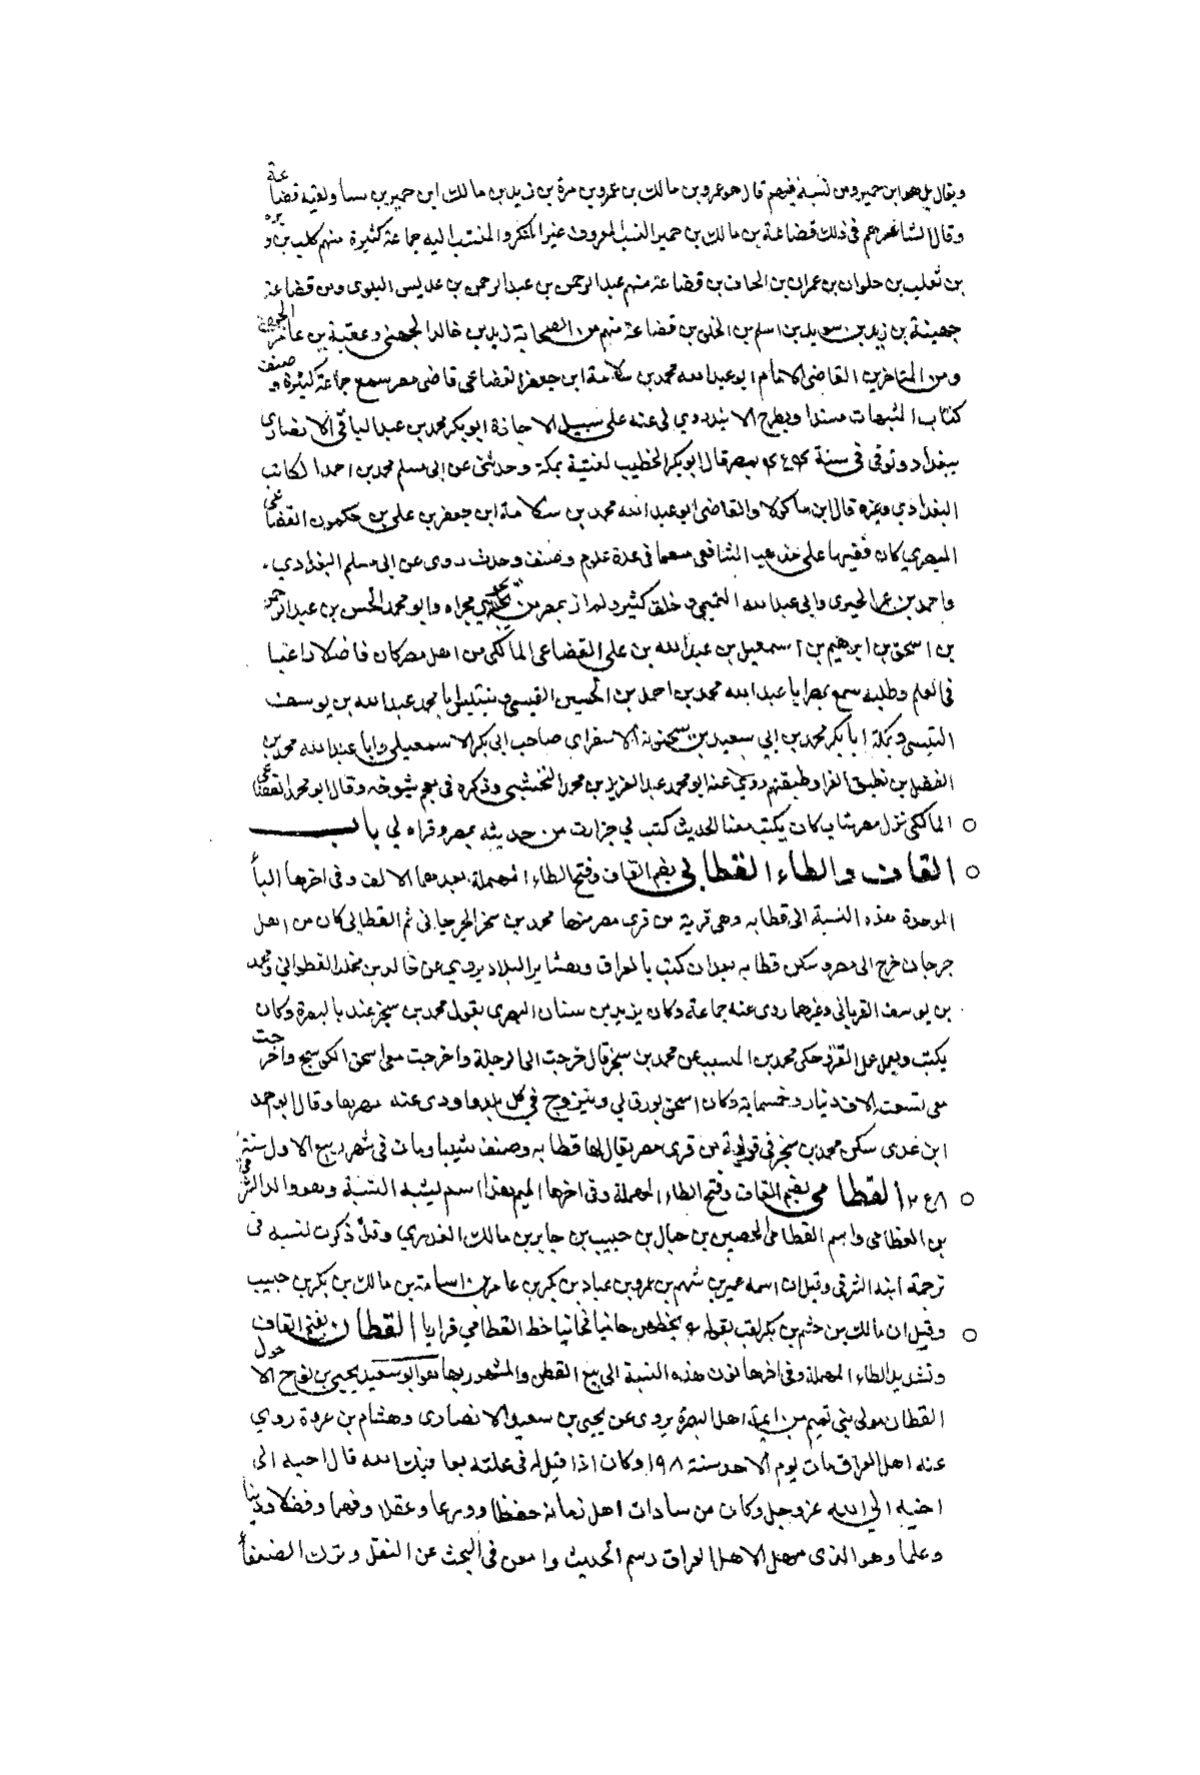 ويقال بل هو ابن حمير ومن نسبه فيهم قال هو عمرو بن مالك بن عمرو بن مرة بن زيد بن مالك ابن حمير بن سبا ولقبه قضاعة
وقال الشاعرهم فى ذلك قضاعة بن مالك بن حمير النسب المعروف غير المنكر والمنتسب اليه جماعة كثيرة منهم كلب بن وبرة
بن تعلب بن حلوان بن عمران بن الحاف بن قضاعة منهم عبدالرحمن بن عبدالرحمن بن عديس البلوى ومن قضاعة
جهينة بن زيد بن سويد بن اسلم بن الحى بن قضاعة منهم من الصحابة زيد بن خالد الجهنى وعقبة بن عامر الجهنى
ومن المتاخرين القاضى الامام ابو عبد الله محمد بن سلامة ابن جعفر القضاعى قاضى مصر سمع جماعة كثيرة وصنف
كتاب الشهاب مسندا وبطرح الاسانيد روي لى عنه على سبيل الاجازة ابو بكر محمد بن عبد الباقى الانصارى
ببغداد وتوفى فى سنة ٤٥٤ بمصر قال ابو بكر الخطيب لقيته بمكة وحدثنى عن ابى مسلم محمد بن احمد الكاتب
البغدادي وغيره قال ابن ماكولا والقاضى ابو عبد الله محمد بن سلامة ابن جعفر بن على بن حكمون القضاعى
المصري كان فقيها على مذهب الشافعى متفننا فى عدة علوم وصنف وحدث روى عن ابى مسلم البغدادي .
واحمد بن عمر الجيزى وابى عبد الله التميمي وخلق كثير ولم ار بمصر من يجري مجراه وابو محمد الحسن بن عبد الرحمن
بن اسحق بن ابرهيم بن اسمعيل بن عبد الله بن على القضاعى المالكى من اهل مصر كان فاضلا راغبا
فى العلم وطلبه سمع بمصر ابا عبد الله محمد بن احمد بن الحسين القيسى وبتنيس ابا محمد عبد الله بن يوسف
التنيسى وبمكة ابا بكر محمد بن ابي سعيد بن سختويه الاسفراي صاحب ابى بكر الاسمعيلى وابا عبد الله محمد بن
الفضل بن نظيف الفرا وطبقتهم روى عنه ابو محمد عبد العزيز بن محمد النخشبى وذكره فى معجم شيوخه وقال ابو محمد القضاعى
المالكى نزل مصر شاب كان يكتب معنا الحديث كتب لي جزازت من حديثه بمصر وقراه لي باب
القاف والطاء القطابي بضم القاف وفتح الطاء المهملة بعدهما الالف وفى اخرها البا
الموحدة هذه النسبة الى قطابه وهى قرية من قرى مصر منها محمد بن سنجر الجرجانى ثم القطابى كان من اهل
جرجان خرج الى مصر وسكن قطابه بعد ان كتب بالعراق وعشاير البلاد يروي عن خالد بن مخلد القطوانى ومحمد
بن يوسف الفريابى وغيرهما روى عنه جماعة وكان يزيد بن سنان البصرى يقول محمد بن سنجر عندنا بالبصرة وكان
يكتب ويعمل عمل القز حكى محمد بن المسيب عن محمد بن سنجر قال خرجت الى الرحلة واخرجت معى اسحق الكوسج واخرجت
معى تسعة الاف دينار وخمسماية وكان اسحق يورق لي ويتزوج فى كل بلد واودى عنه مهرها وقال ابو احمد
ابن عدى سكن محمد بن سنجر فى قرية من قرى مصر يقال لها قطابه وصنف شيئا ومات فى شهر ربيع الاول سنة
٢٤٨ القطامى بضم القاف وفتح الطاء المهملة وفى اخرها الميم هذا اسم ليشبه النسبة وهو والد الشرقى
بن القطامى واسم القطامى الحصين بن حمال بن حبيب بن جابر بن مالك العذري وقد ذكرت نسبه فى
ترجمة ابنه الشرقى وقيل ان اسمه عمير بن شيم بن عمرو بن عباد بن بكر بن عامر بن اسامة بن مالك بن بكر بن حبيب
وقيل ان مالك بن جشم بن بكر لقب بقوله يحطهن جانبا فجانبا حط القطامي قواربا القطان بفتح القاف
وتشديد الطاء المهملة وفى اخرها نون هذه النسبة الى بيع القطن والمشهور بها هو ابو سعيد يحيى بن فروخ الاحول
القطان مولى بنى تميم من ايمة اهل البصرة يروى عن يحيى بن سعيد الانصارى وهشام بن عروة روي
عنه اهل العراق مات يوم الاحد سنة ١٩٨ وكان اذا قيل له فى علته يعافيك الله قال احبه الى
احبه الي الله عز وجل وكان من سادات اهل زمانه حفظا وورعا وعقلا وفهما وفضلا ودينا
وعلما وهو الذى مهد لاهل العراق رسم الحديث وامعن فى البحث عن النقل وترك الضعفا